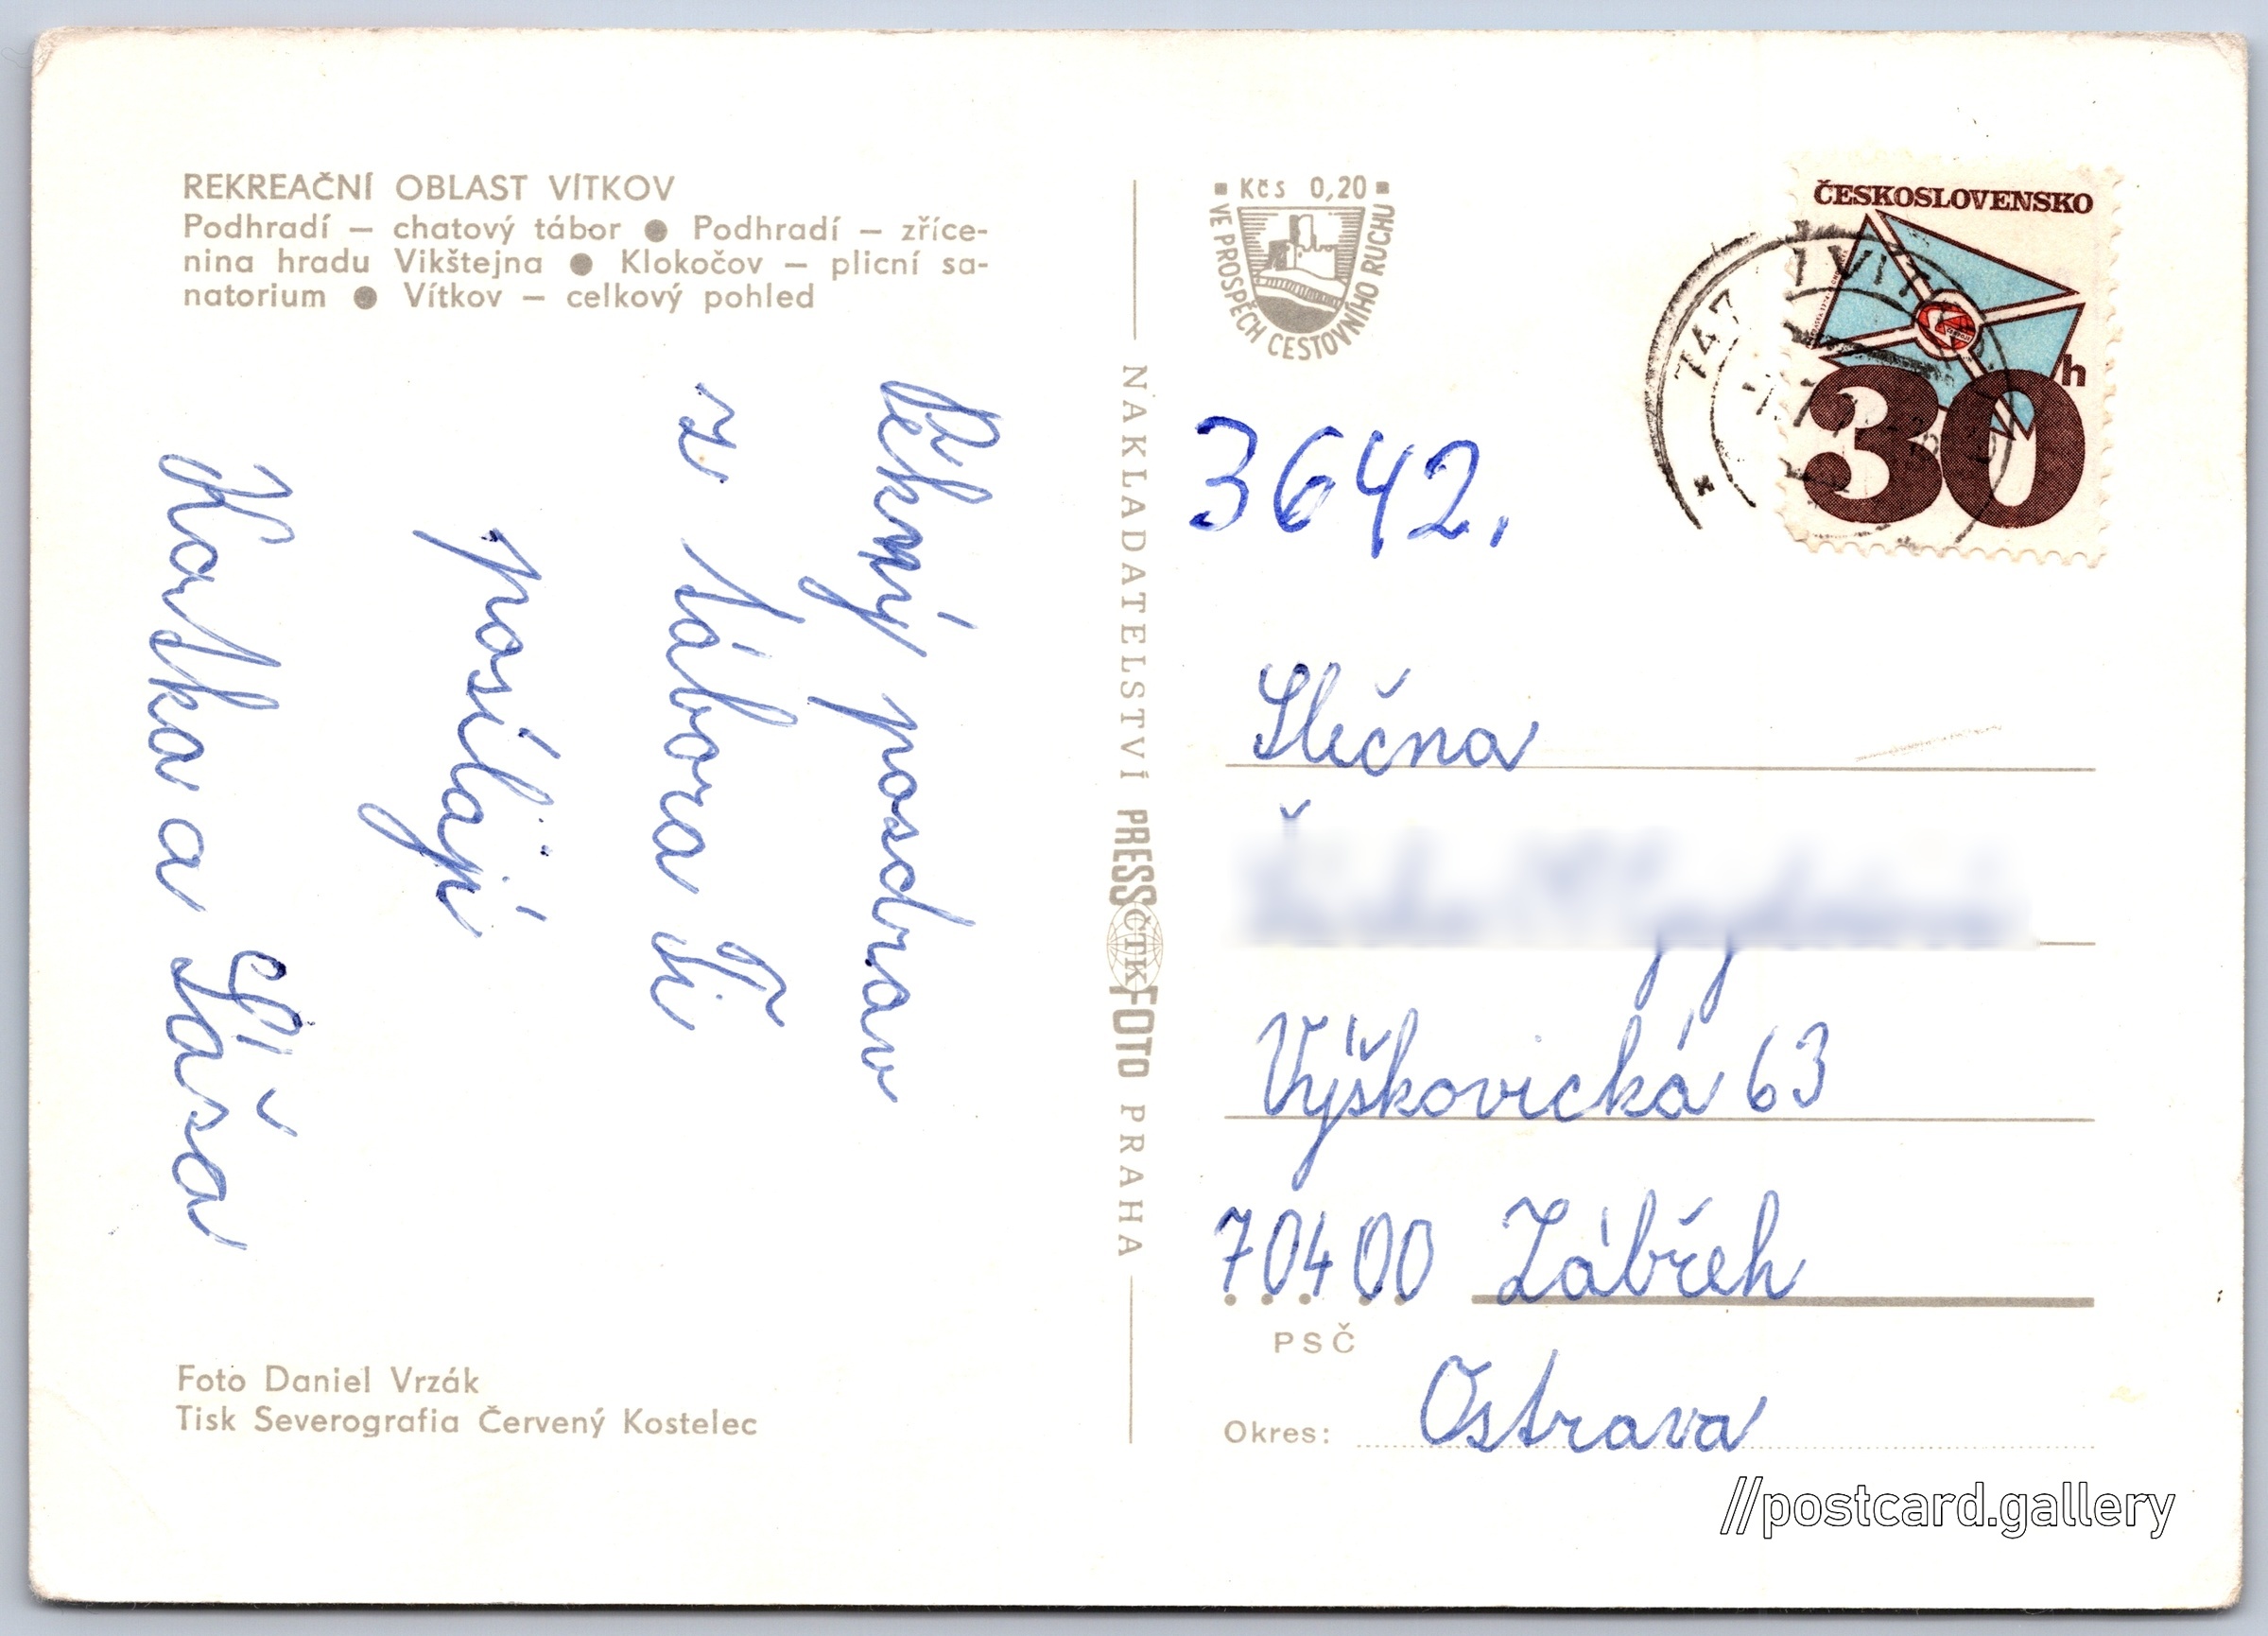 REKREAČNÍ OBLAST VÍTKOV
Podhradí — chatový tábor ● Podhradí — zříce-
nina hradu Vikštejna ● Klokočov — plicní sa-
natorium ● Vítkov — celkový pohled
Pěkný pozdrav
z tábora Ti
posílají
Kaťka a Sáša
Foto Daniel Vrzák
Tisk Severografia Červený Kostelec
NAKLADATELSTVÍ PRESS ČTK FOTO PRAHA
Kčs 0,20
VE PROSPĚCH CESTOVNÍHO RUCHU
ČESKOSLOVENSKO
30 h
747
3642.
Slečna
Výškovická 63
704 00 Zábřeh
PSČ
Okres: Ostrava
//postcard.gallery